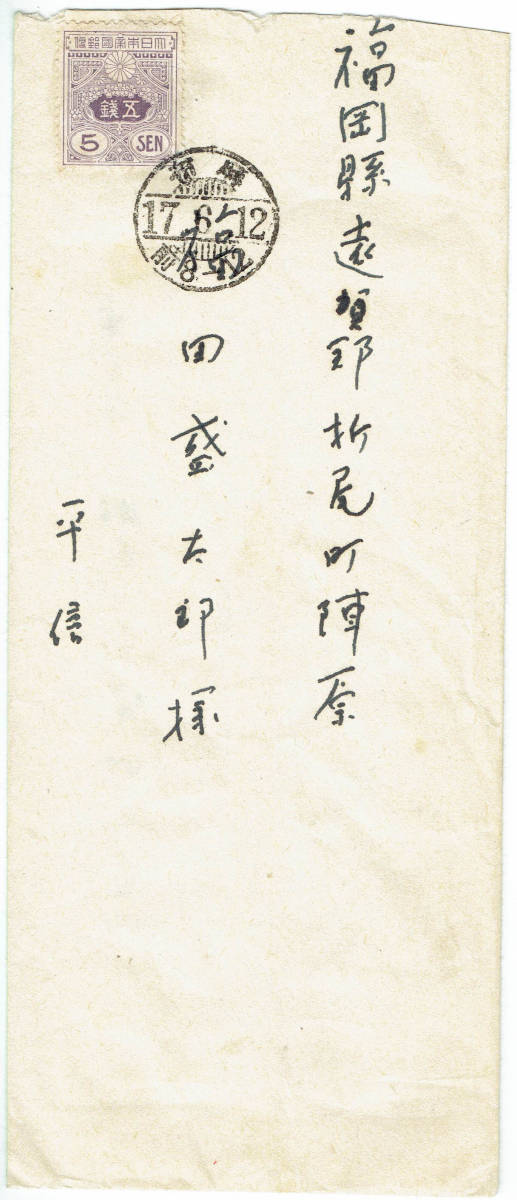 福岡縣遠賀郡折尾町陣原
田盛太郎様
平信
大日本帝國郵便
五銭
5 SEN
17.6.12